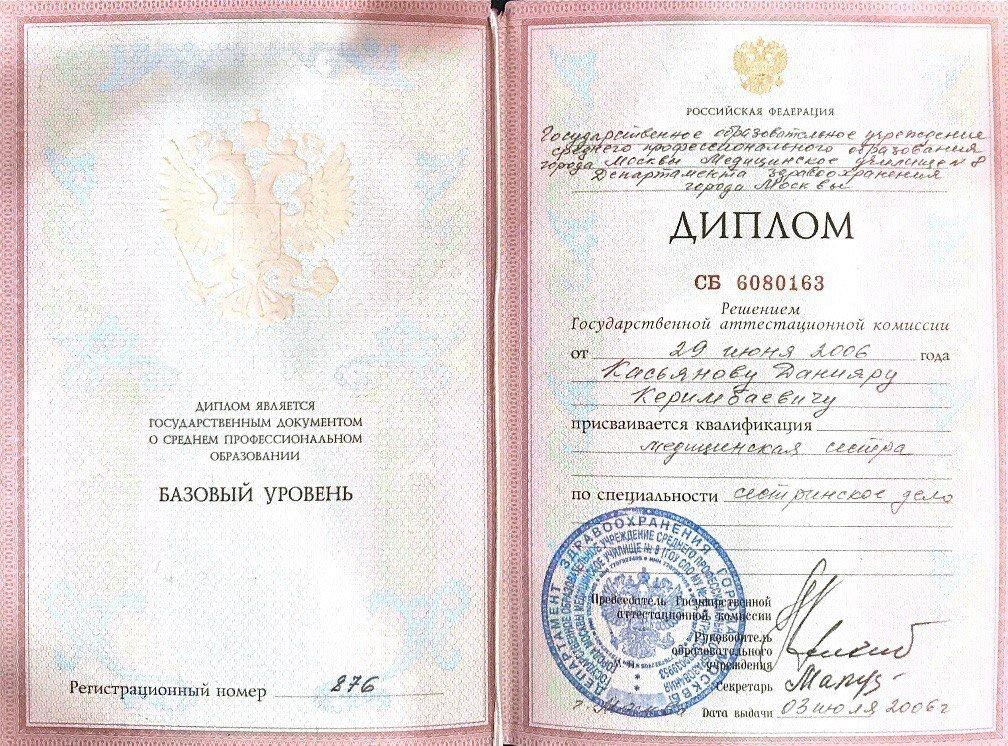 ДИПЛОМ ЯВЛЯЕТСЯ
ГОСУДАРСТВЕННЫМ ДОКУМЕНТОМ
О СРЕДНЕМ ПРОФЕССИОНАЛЬНОМ
ОБРАЗОВАНИИ
БАЗОВЫЙ УРОВЕНЬ
Регистрационный номер 876
РОССИЙСКАЯ ФЕДЕРАЦИЯ
Государственное образовательное учреждение
среднего профессионального образования
города Москвы Медицинское училище № 8
Департамента здравоохранения
города Москвы
ДИПЛОМ
СБ 6080163
Решением
Государственной аттестационной комиссии
от 29 июня 2006 года
Касьянову Данияру
Керимбаевичу
присваивается квалификация
медицинская сестра
по специальности сестринское дело
ДЕПАРТАМЕНТ ЗДРАВООХРАНЕНИЯ ГОРОДА МОСКВЫ
Председатель Государственной
аттестационной комиссии
Руководитель
образовательного
учреждения
Секретарь
Дата выдачи 03 июля 2006 г